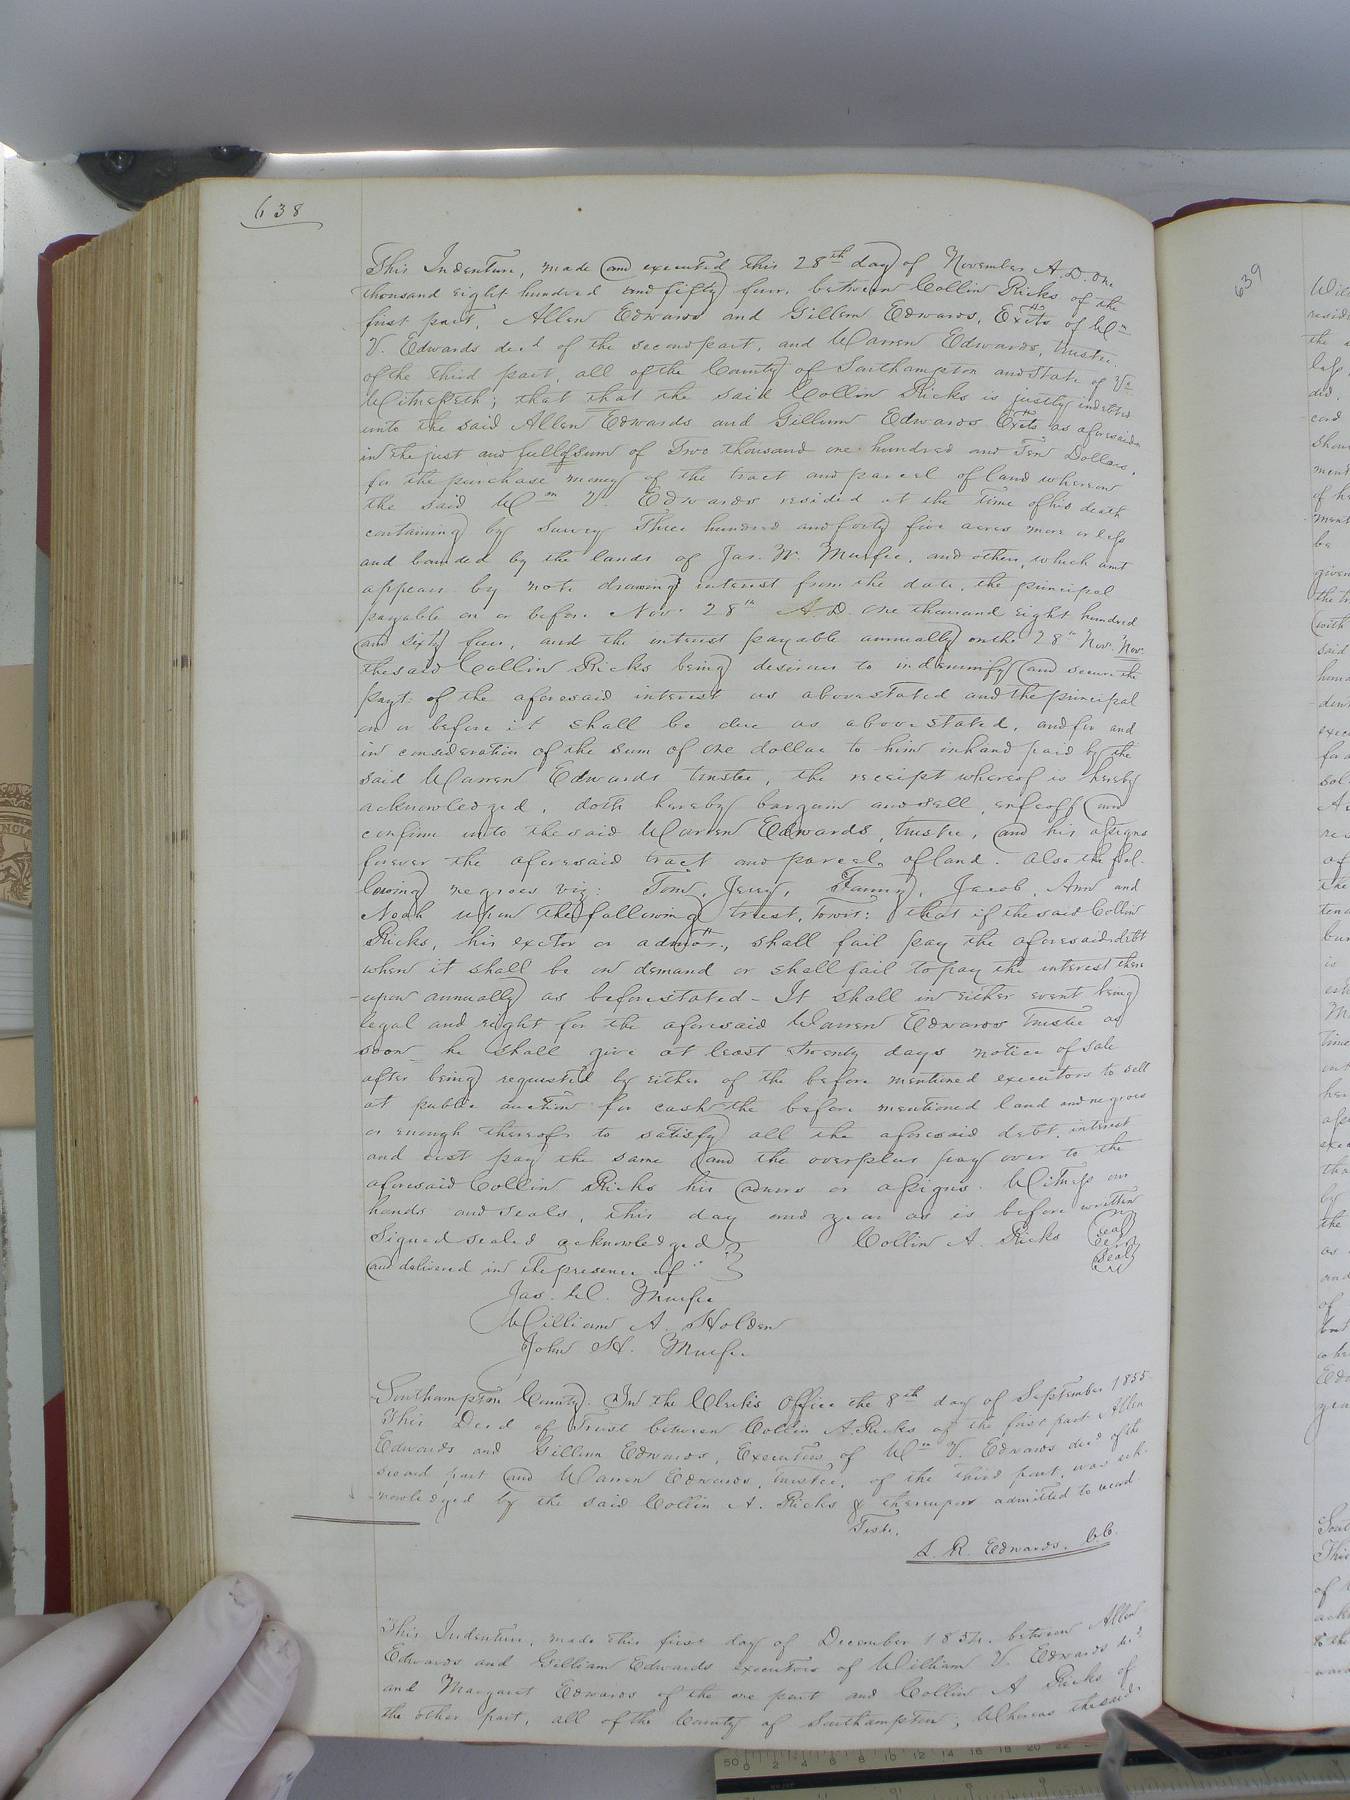 638
This Indenture, made and executed this 28th day of November A.D. One
thousand eight hundred and fifty four, between Collin Ricks of the
first part, Allen Edwards and Gillum Edwards, Exrs of Wm
V. Edwards decd of the second part, and Warren Edwards, trustee
of the third part, all of the County of Southampton and State of Va
Witnesseth; that that the said Collin Ricks is justly indebted
unto the said Allen Edwards and Gillum Edwards Exrs as aforesaid
in the just and full sum of Two thousand one hundred and Ten Dollars,
for the purchase money of the tract and parcel of land whereon
the said Wm V. Edwards resided at the time of his death
containing by survey Three hundred and forty five acres more or less
and bounded by the lands of Jas. W. Murfee, and others, which amt
appears by note drawing interest from the date, the principal
payable on or before Nov. 28th A.D. One thousand eight hundred
and sixty four, and the interest payable annually on the 28th Nov. Nov.
the said Collin Ricks being desirous to indemnify and secure the
payt. of the aforesaid interest as above stated and the principal
on or before it shall be due as above stated, and for and
in consideration of the sum of one dollar to him in hand paid by the
said Warren Edwards trustee, the receipt whereof is hereby
acknowledged, doth hereby bargain and sell, enfeoff and
confirm unto the said Warren Edwards, trustee, and his assigns
forever the aforesaid tract and parcel of land. Also the fol-
lowing negroes viz: Tom, Jerry, Fanny, Jacob, Ann and
Noah upon the following trust, towit: that if the said Collin
Ricks, his exctor or admor., shall fail pay the aforesaid debt
when it shall be on demand or shall fail to pay the interest there
-upon annually as before stated - It shall in either event being
legal and right for the aforesaid Warren Edwards trustee as
soon he shall give at least twenty days notice of sale
after being requested by either of the before mentioned executors to sell
at public auction for cash the before mentioned land and negroes
or enough thereof to satisfy all the aforesaid debt, interest
and cost pay the same and the overplus pay over to the
aforesaid Collin Ricks his admors or assigns. Witness our
hands and seals, this day and year as is before written
Signed sealed acknowledged Collin A. Ricks Seal
and delivered in the presence of Seal
Jas. W. Murfee
William A. Holden
John H. Murfee
Southampton County. In the Clerk's Office the 8th day of September 1855
This Deed of Trust between Collin A. Ricks of the first part & Allen
Edwards and Gillum Edwards, Executors of Wm V. Edwards decd of the
second part and Warren Edwards, trustee, of the third part, was ack-
nowledged by the said Collin A. Ricks & thereupon admitted to record
Teste,
L. R. Edwards, C.C.
This Indenture, made this first day of December 1854, between Allen
Edwards and Gilliam Edwards executors of William V. Edwards
and Margaret Edwards of the one part and Collin A Ricks of
the other part, all of the County of Southampton; Whereas the said
639